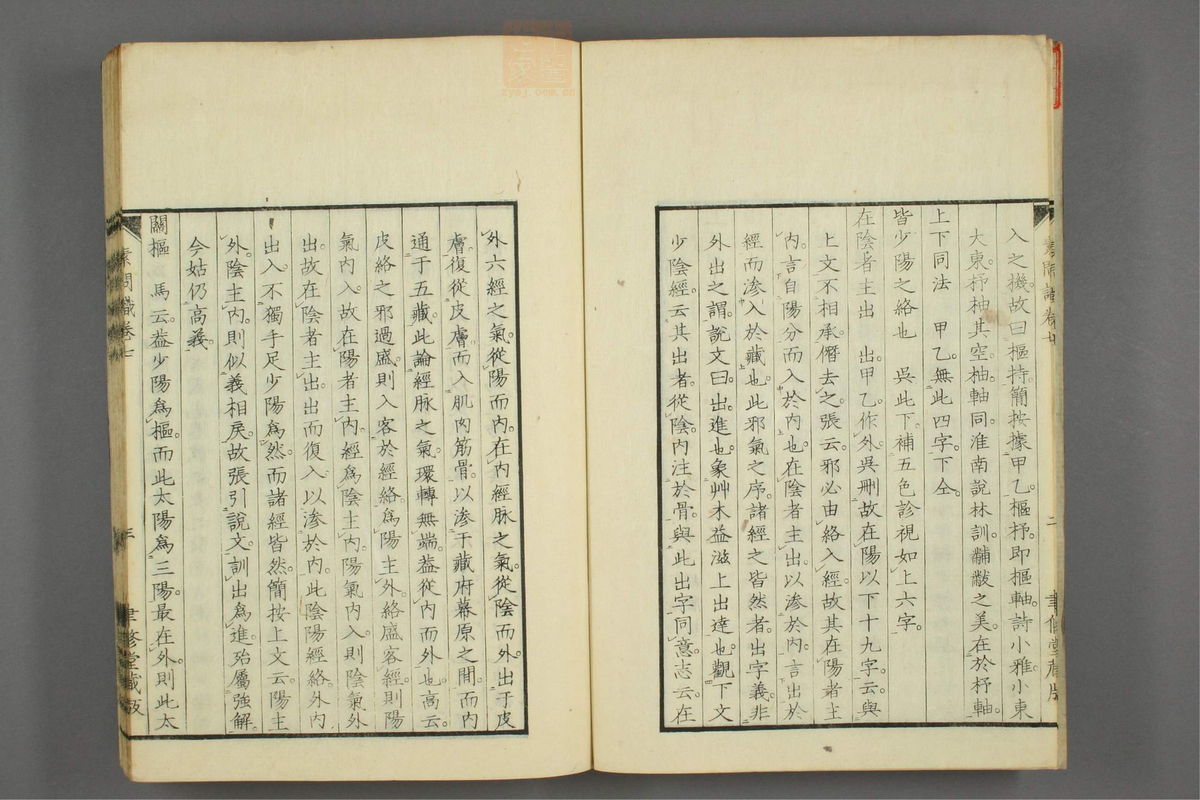 入之機故曰樞持簡按據甲乙樞杼即樞軸詩小雅小東
大東杼柚其空柚軸同淮南說林訓黼黻之美在於杼軸
上下同法　甲乙無此四字下仝
皆少陽之絡也　吳此下補五色診視如上六字
在陰者主出　出甲乙作外吳刪故在陽以下十九字云與
上文不相承僭去之張云邪必由絡入經故其在陽者主
內言自陽分而入於內也在陰者主出以滲於內言出於
經而滲入於藏也此邪氣之序諸經之皆然者出字義非
外出之謂說文曰出進也象艸木益滋上出達也觀下文
少陰經云其出者從陰內注於骨與此出字同意志云在
外六經之氣從陽而內在內經脉之氣從陰而外出于皮
膚復從皮膚而入肌肉筋骨以滲于藏府募原之間而內
通于五藏此論經脉之氣環轉無端葢從內而外也高云
皮絡之邪過盛則入客於經絡爲陽主外絡盛客經則陽
氣內入故在陽者主內經爲陰主內陽氣內入則陰氣外
出故在陰者主出出而復入以滲於內此陰陽經絡外內
出入不獨手足少陽爲然而諸經皆然簡按上文云陽主
外陰主內則似義相戾故張引說文訓出爲進殆屬強解
今姑仍高義
關樞　馬云葢少陽爲樞而此太陽爲三陽最在外則此太
素問識卷七
三
聿修堂藏板
zysj.com.cn